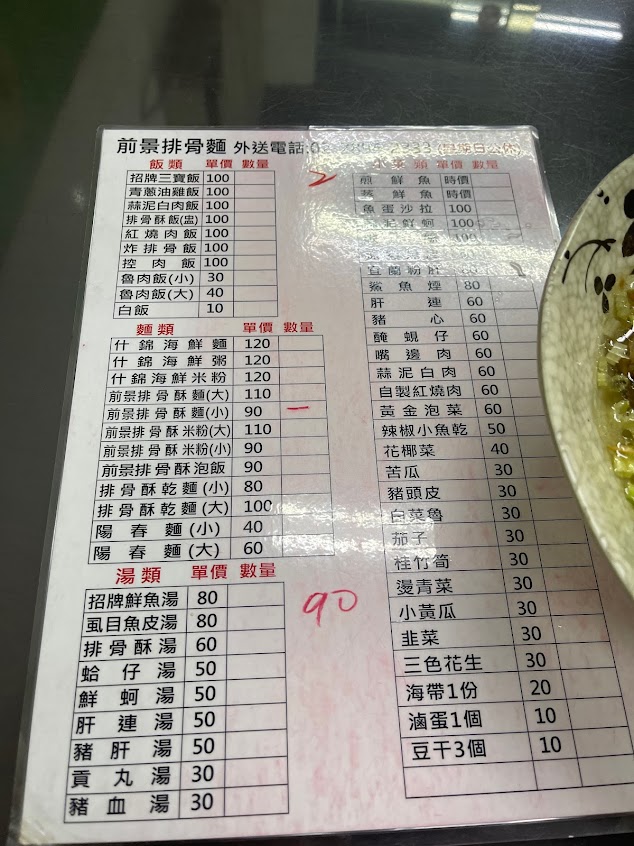 前景排骨麵 外送電話:0 2333 (每週日公休)
飯類 單價 數量
招牌三寶飯 100
青蔥油雞飯 100
蒜泥白肉飯 100
排骨酥飯(盅) 100
紅燒肉飯 100
炸排骨飯 100
控肉飯 100
魯肉飯(小) 30
魯肉飯(大) 40
白飯 10
麵類 單價 數量
什錦海鮮麵 120
什錦海鮮粥 120
什錦海鮮米粉 120
前景排骨酥麵(大) 110
前景排骨酥麵(小) 90 一
前景排骨酥米粉(大) 110
前景排骨酥米粉(小) 90
前景排骨酥泡飯 90
排骨酥乾麵(小) 80
排骨酥乾麵(大) 100
陽春麵(小) 40
陽春麵(大) 60
湯類 單價 數量
招牌鮮魚湯 80
虱目魚皮湯 80
排骨酥湯 60
蛤仔湯 50
鮮蚵湯 50
肝連湯 50
豬肝湯 50
貢丸湯 30
豬血湯 30
2
90
類 單價 數量
煎鮮魚 時價
蒸鮮魚 時價
魚蛋沙拉 100
鮮蚵 100
宜蘭粉肝 60
鯊魚煙 80
肝連 60
豬心 60
醃蜆仔 60
嘴邊肉 60
蒜泥白肉 60
自製紅燒肉 60
黃金泡菜 60
辣椒小魚乾 50
花椰菜 40
苦瓜 30
豬頭皮 30
白菜魯 30
茄子 30
桂竹筍 30
燙青菜 30
小黃瓜 30
韭菜 30
三色花生 30
海帶1份 20
滷蛋1個 10
豆干3個 10